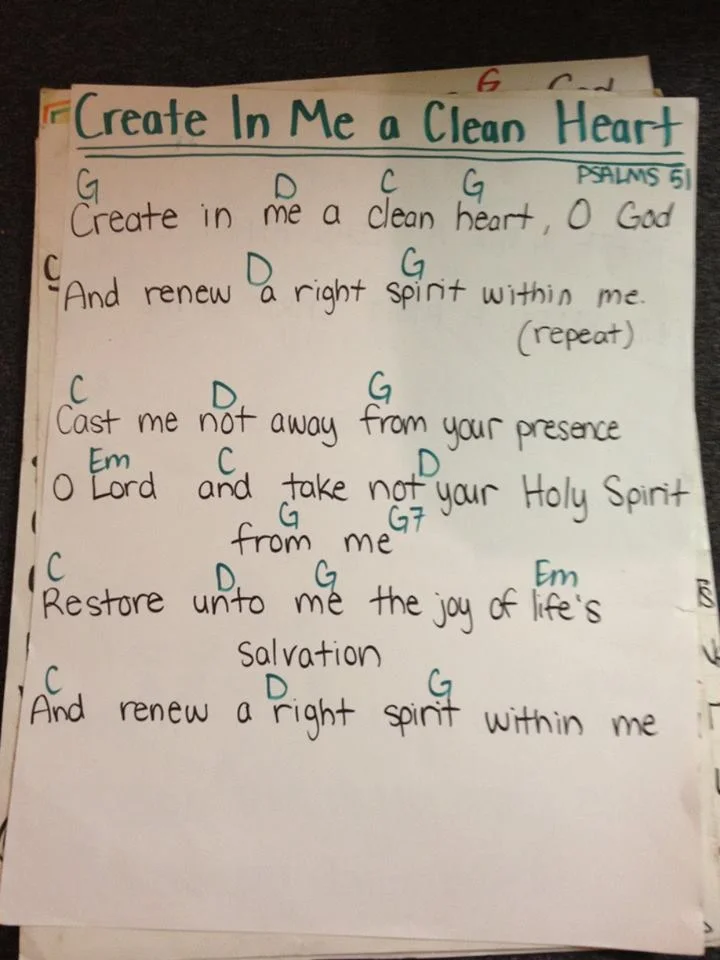 G God
Create In Me a Clean Heart
PSALMS 51
G D C G
Create in me a clean heart, O God
D G
And renew a right spirit within me.
(repeat)
C D G
Cast me not away from your presence
Em C D
O Lord and take not your Holy Spirit
G G7
from me
C D G Em
Restore unto me the joy of life's
salvation
C D G
And renew a right spirit within me